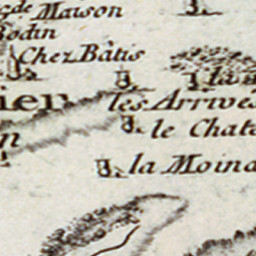 gde Maison
Bodin
Chez Bâtis
ier
les Arrives
le Chat
la Moin
n